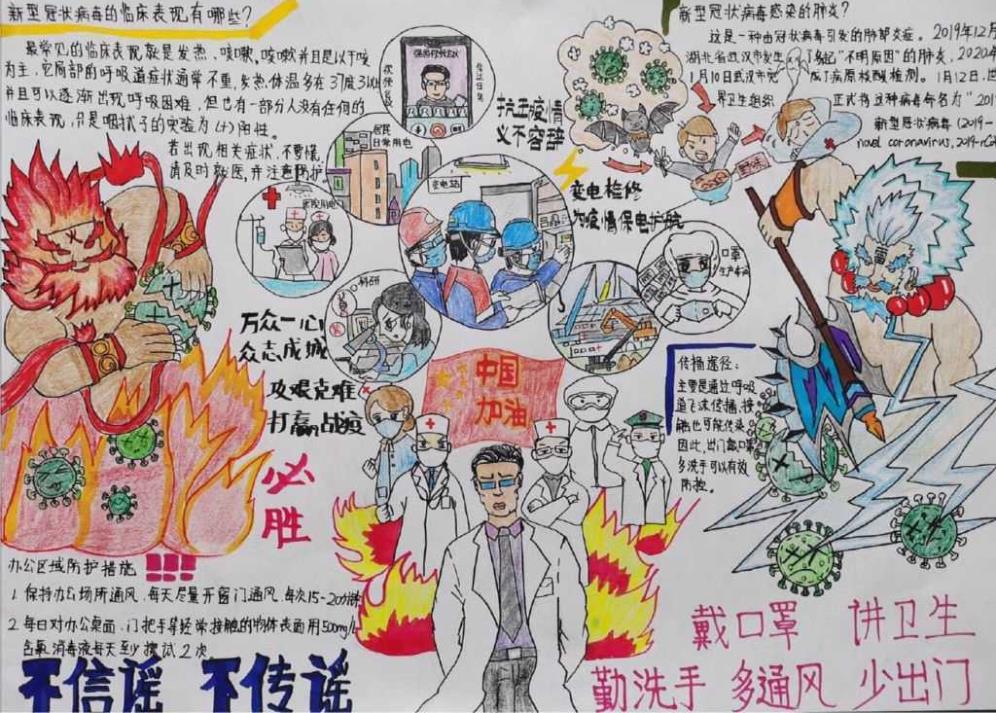 新型冠状病毒的临床表现有哪些?
最常见的临床表现就是发热、咳嗽,咳嗽并且是以干咳
为主,它局部的呼吸道症状通常不重,发热体温多在37度3以上
并且可以逐渐出现呼吸困难,但也有一部分人没有任何的
临床表现,只是咽拭子的实验为(+)阳性。
若出现相关症状,不要慌,
请及时就医,并注意防护
新型冠状病毒感染的肺炎?
这是一种由冠状病毒引发的肺部炎症。2019年12月
湖北省武汉市发生了多起"不明原因"的肺炎,2020年
1月10日武汉市完成了病原核酸检测。1月12日,世
界卫生组织正式将这种病毒命名为"201
新型冠状病毒(2019-
novel coronavirus,2019-nCo
抗击疫情
义不容辞
变电检修
为疫情保电护航
居民
日常用电
变电站
医院用电
科研
口罩
生产车间
万众一心
众志成城
攻艰克难
打赢战疫
必
胜
中国
加油
传播途径:
主要是通过呼吸
道飞沫传播,接
触也可能传染
因此,出门戴口罩
多洗手可以有效
防控。
办公区域防护措施
1.保持办公场所通风,每天尽量开窗门通风,每次15-20分钟
2.每日对办公桌面、门把手等经常接触的物体表面用500mg/L
含氯消毒液每天至少擦试2次。
不信谣 不传谣
戴口罩 讲卫生
勤洗手 多通风 少出门